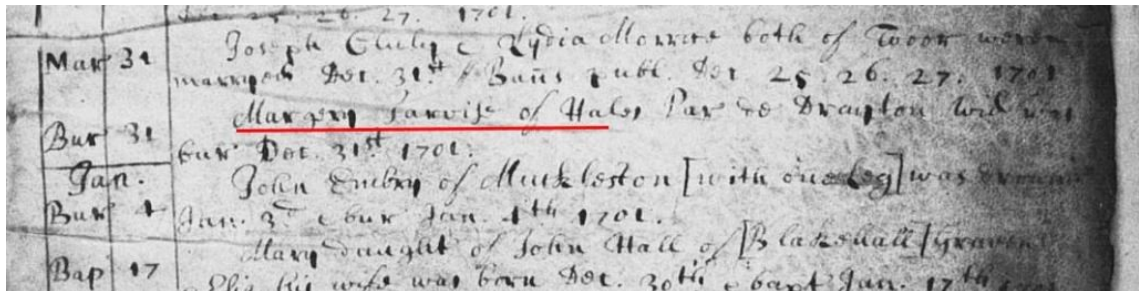 25. 26. 27. 1701.
Mar 31 Joseph & Lydia both of were
marryed Dec. 31st Banns publ. Dec 25. 26. 27. 1701
Margery Jarvise of Hales Par de Drayton wid was
Bur 31 bur Dec. 31st 1701.
Jan. John Embry of Muckleston [with one Leg] was
Bur 4 Jan. 3d & bur Jan. 4th 1701.
Mary daught of John Hall of [Blakehall]
Bap 17 his wife was born Dec. 30th & bapt Jan. 17th